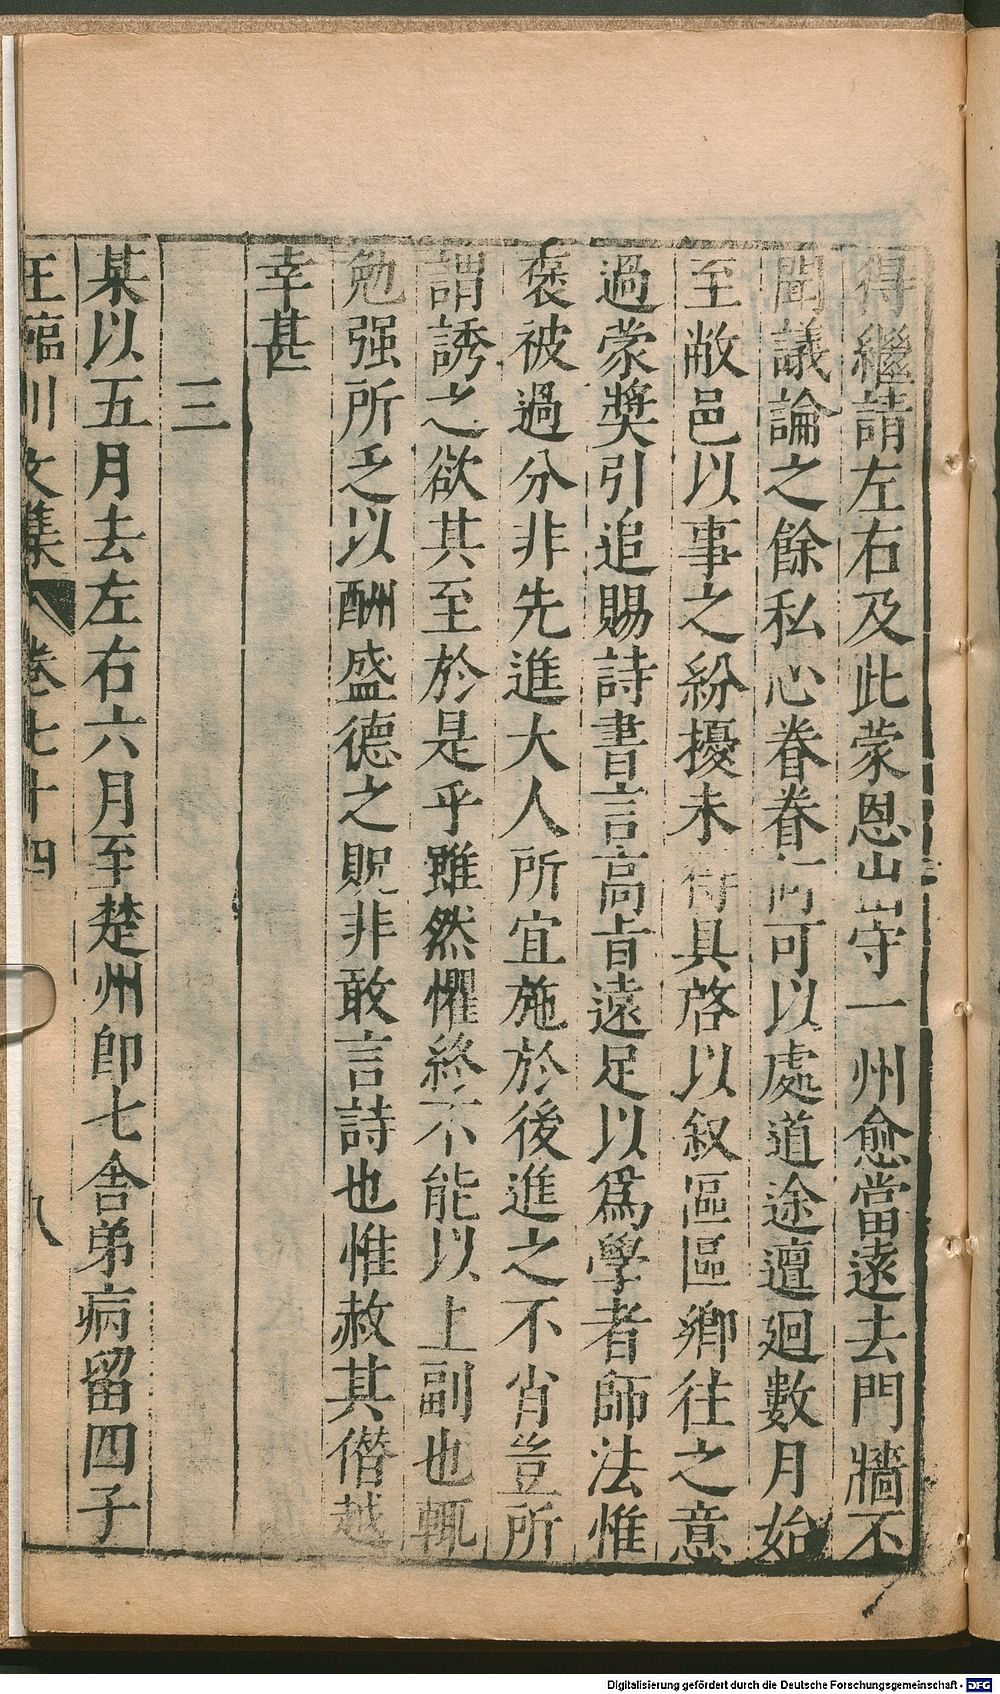 得繼請左右及此蒙恩出守一州愈當遠去門牆不
聞議論之餘私心眷眷何可以處道途邅廻數月始
至敝邑以事之紛擾未得具啓以叙區區鄉往之意
過蒙奬引追賜詩書言高旨遠足以爲學者師法惟
褒被過分非先進大人所宜施於後進之不肖豈所
謂誘之欲其至於是乎雖然懼終不能以上副也輒
勉强所乏以酬盛德之貺非敢言詩也惟赦其僭越
幸甚
三
某以五月去左右六月至楚州即七舍弟病留四子
王臨川文集 卷七十四 八
Digitalisierung gefördert durch die Deutsche Forschungsgemeinschaft - DFG